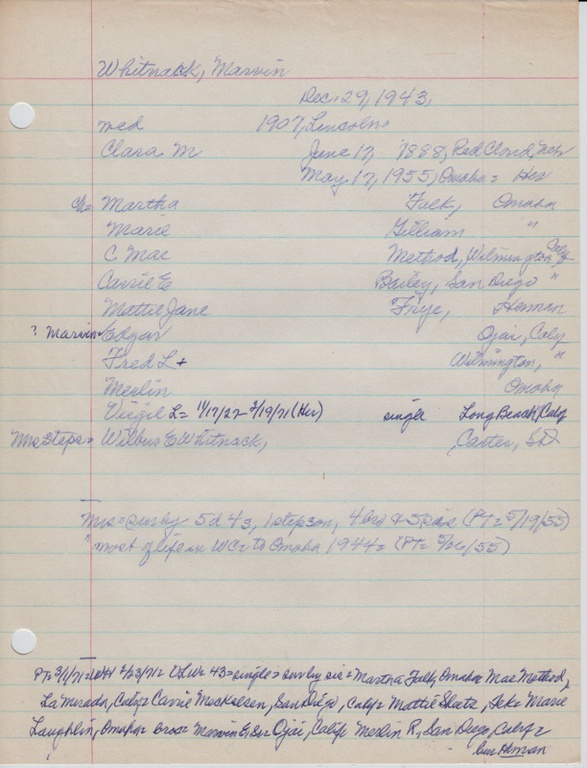 Whitnack, Marvin
Dec. 29, 1943,
med 1907, Lincoln=
Clara M June 17, 1888, Red Cloud, Neb
May 17, 1955, Omaha = Her
Ch= Martha Falk, Omaha
Marie Gilliam "
C Mae Method, Wilmington Calif
Carrie E Bailey, San Diego "
Mattie Jane Frye, Herman
? Marvin Edgar Ojai, Caly
Fred L + Wilmington, "
Merlin Omaha
Virgil L= 11/17/27- 2/19/71 (Her) single Long Beach, Calif
Mrs steps= Wilbur E Whitnack, Carter, SD
Mrs = surby 5d 4s, 1 stepson, 4 bro & 5 sis (PT= 5/19/55)
" most of life in WC= to Omaha 1944= (PT= 5/26/55)
PT= 3/4/71= 2/23/71= VLW= 43= single= survby sis= Martha Falk, Omaha Mae Method,
La Mirada, Calif= Carrie San Diego, Calif= Mattie Teke Marie
Laughlin, Omaha= bros= Marvin E, Sr Ojai, Calif= Merlin R, San Diego, Calif=
bur Herman